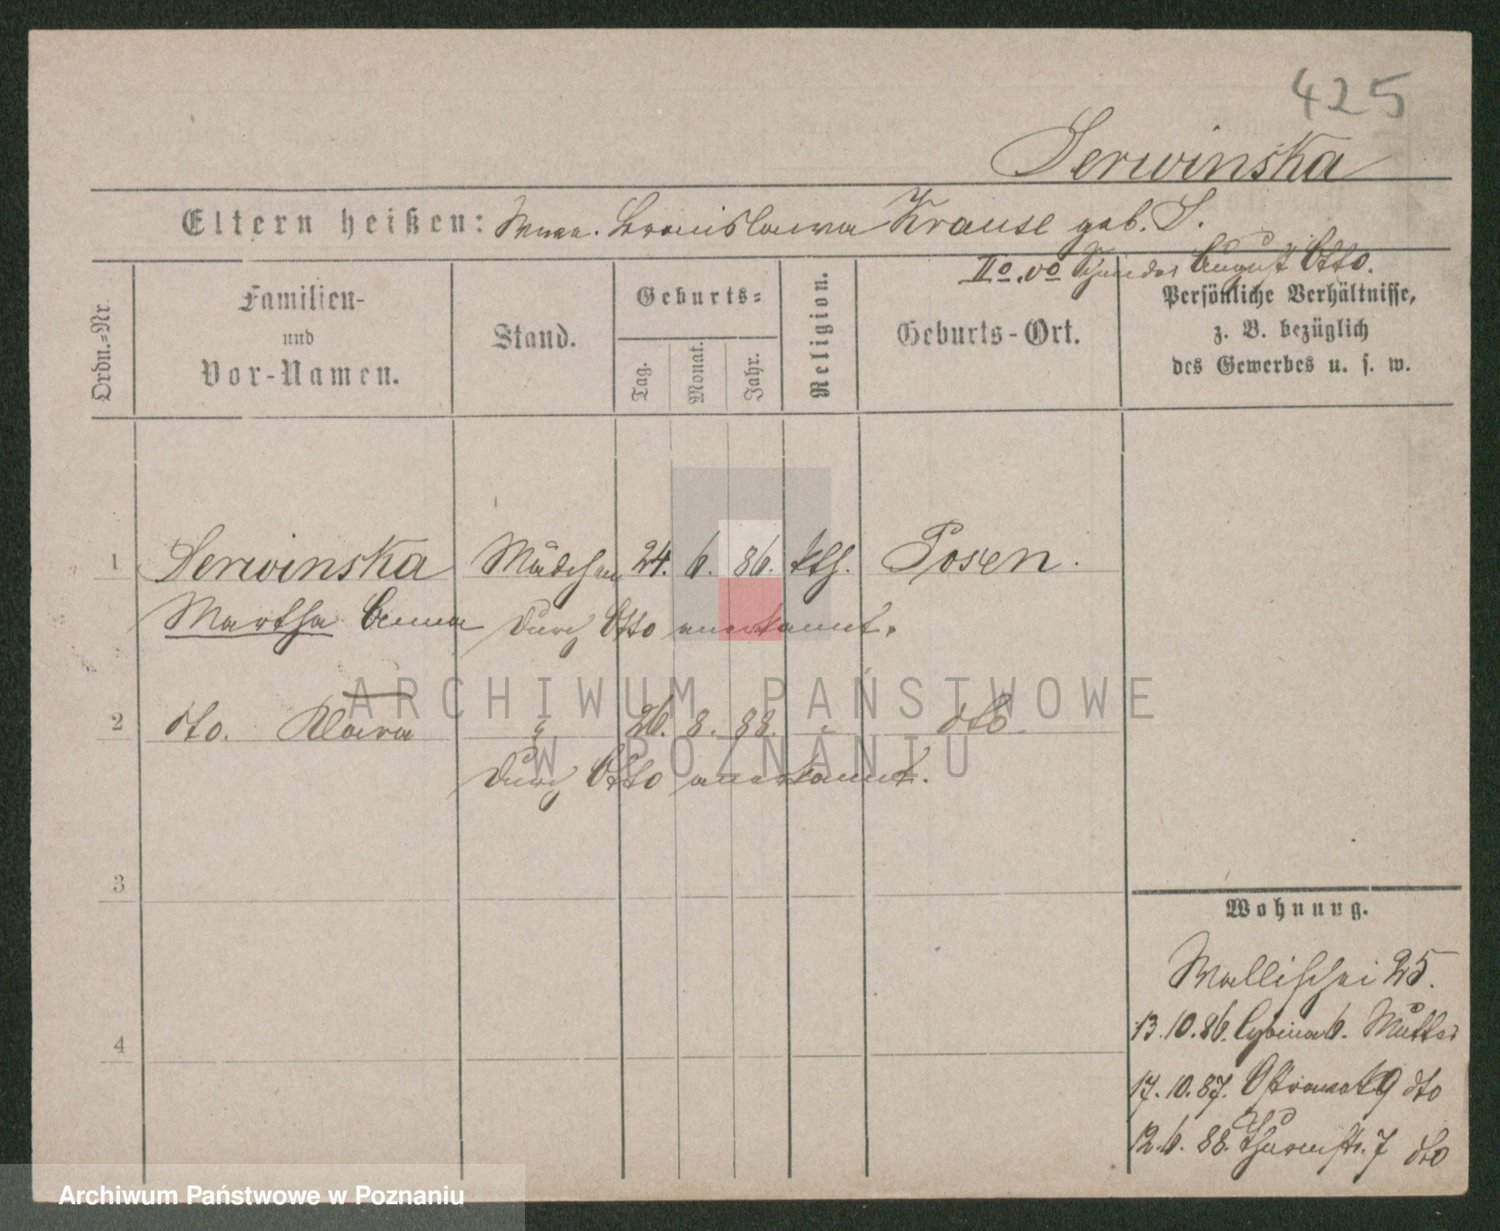 425
Serwinska
Eltern heißen: Wwe. Bronislawa Krause geb. S.
IIo. vo August Otto.
Ordn.-Nr
Familien-
und
Vor-Namen.
Stand.
Geburts-
Tag.
Monat.
Jahr.
Religion.
Geburts-Ort.
Persönliche Verhältnisse,
z. B. bezüglich
des Gewerbes u. s. w.
1 Serwinska Mädchen 24. 6. 86. kth. Posen.
Martha Anna durch Otto anerkannt.
2 dto. Klara " 26. 8. 88. " dto.
durch Otto anerkannt.
3
4
Wohnung.
Wallischei 25.
13.10.86. Cybina 6. Mutter
17.10.87. Ostrowek 9 dto
12.6.88. Thurmstr. 7 dto
ARCHIWUM PAŃSTWOWE
W POZNANIU
Archiwum Państwowe w Poznaniu